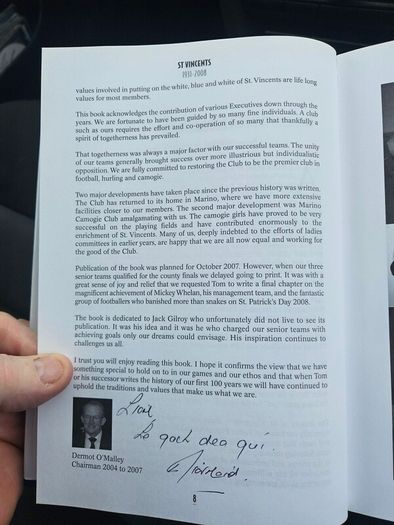 ST VINCENTS
1931-2008
values involved in putting on the white, blue and white of St. Vincents are life long
values for most members.
This book acknowledges the contribution of various Executives down through the
years. We are fortunate to have been guided by so many fine individuals. A club
such as ours requires the effort and co-operation of so many that thankfully a
spirit of togetherness has prevailed.
That togetherness was always a major factor with our successful teams. The unity
of our teams generally brought success over more illustrious but individualistic
opposition. We are fully committed to restoring the Club to be the premier club in
football, hurling and camogie.
Two major developments have taken place since the previous history was written.
The Club has returned to its home in Marino, where we have more extensive
facilities closer to our members. The second major development was Marino
Camogie Club amalgamating with us. The camogie girls have proved to be very
successful on the playing fields and have contributed enormously to the
enrichment of St. Vincents. Many of us, deeply indebted to the efforts of ladies
committees in earlier years, are happy that we are all now equal and working for
the good of the Club.
Publication of the book was planned for October 2007. However, when our three
senior teams qualified for the county finals we delayed going to print. It was with a
great sense of joy and relief that we requested Tom to write a final chapter on the
magnificent achievement of Mickey Whelan, his management team, and the fantastic
group of footballers who banished more than snakes on St. Patrick's Day 2008.
The book is dedicated to Jack Gilroy who unfortunately did not live to see its
publication. It was his idea and it was he who charged our senior teams with
achieving goals only our dreams could envisage. His inspiration continues to
challenges us all.
I trust you will enjoy reading this book. I hope it confirms the view that we have
something special to hold on to in our games and our ethos and that when Tom
or his successor writes the history of our first 100 years we will have continued to
uphold the traditions and values that make us what we are.
Le gach dea guí.
Dermot O'Malley
Chairman 2004 to 2007
8